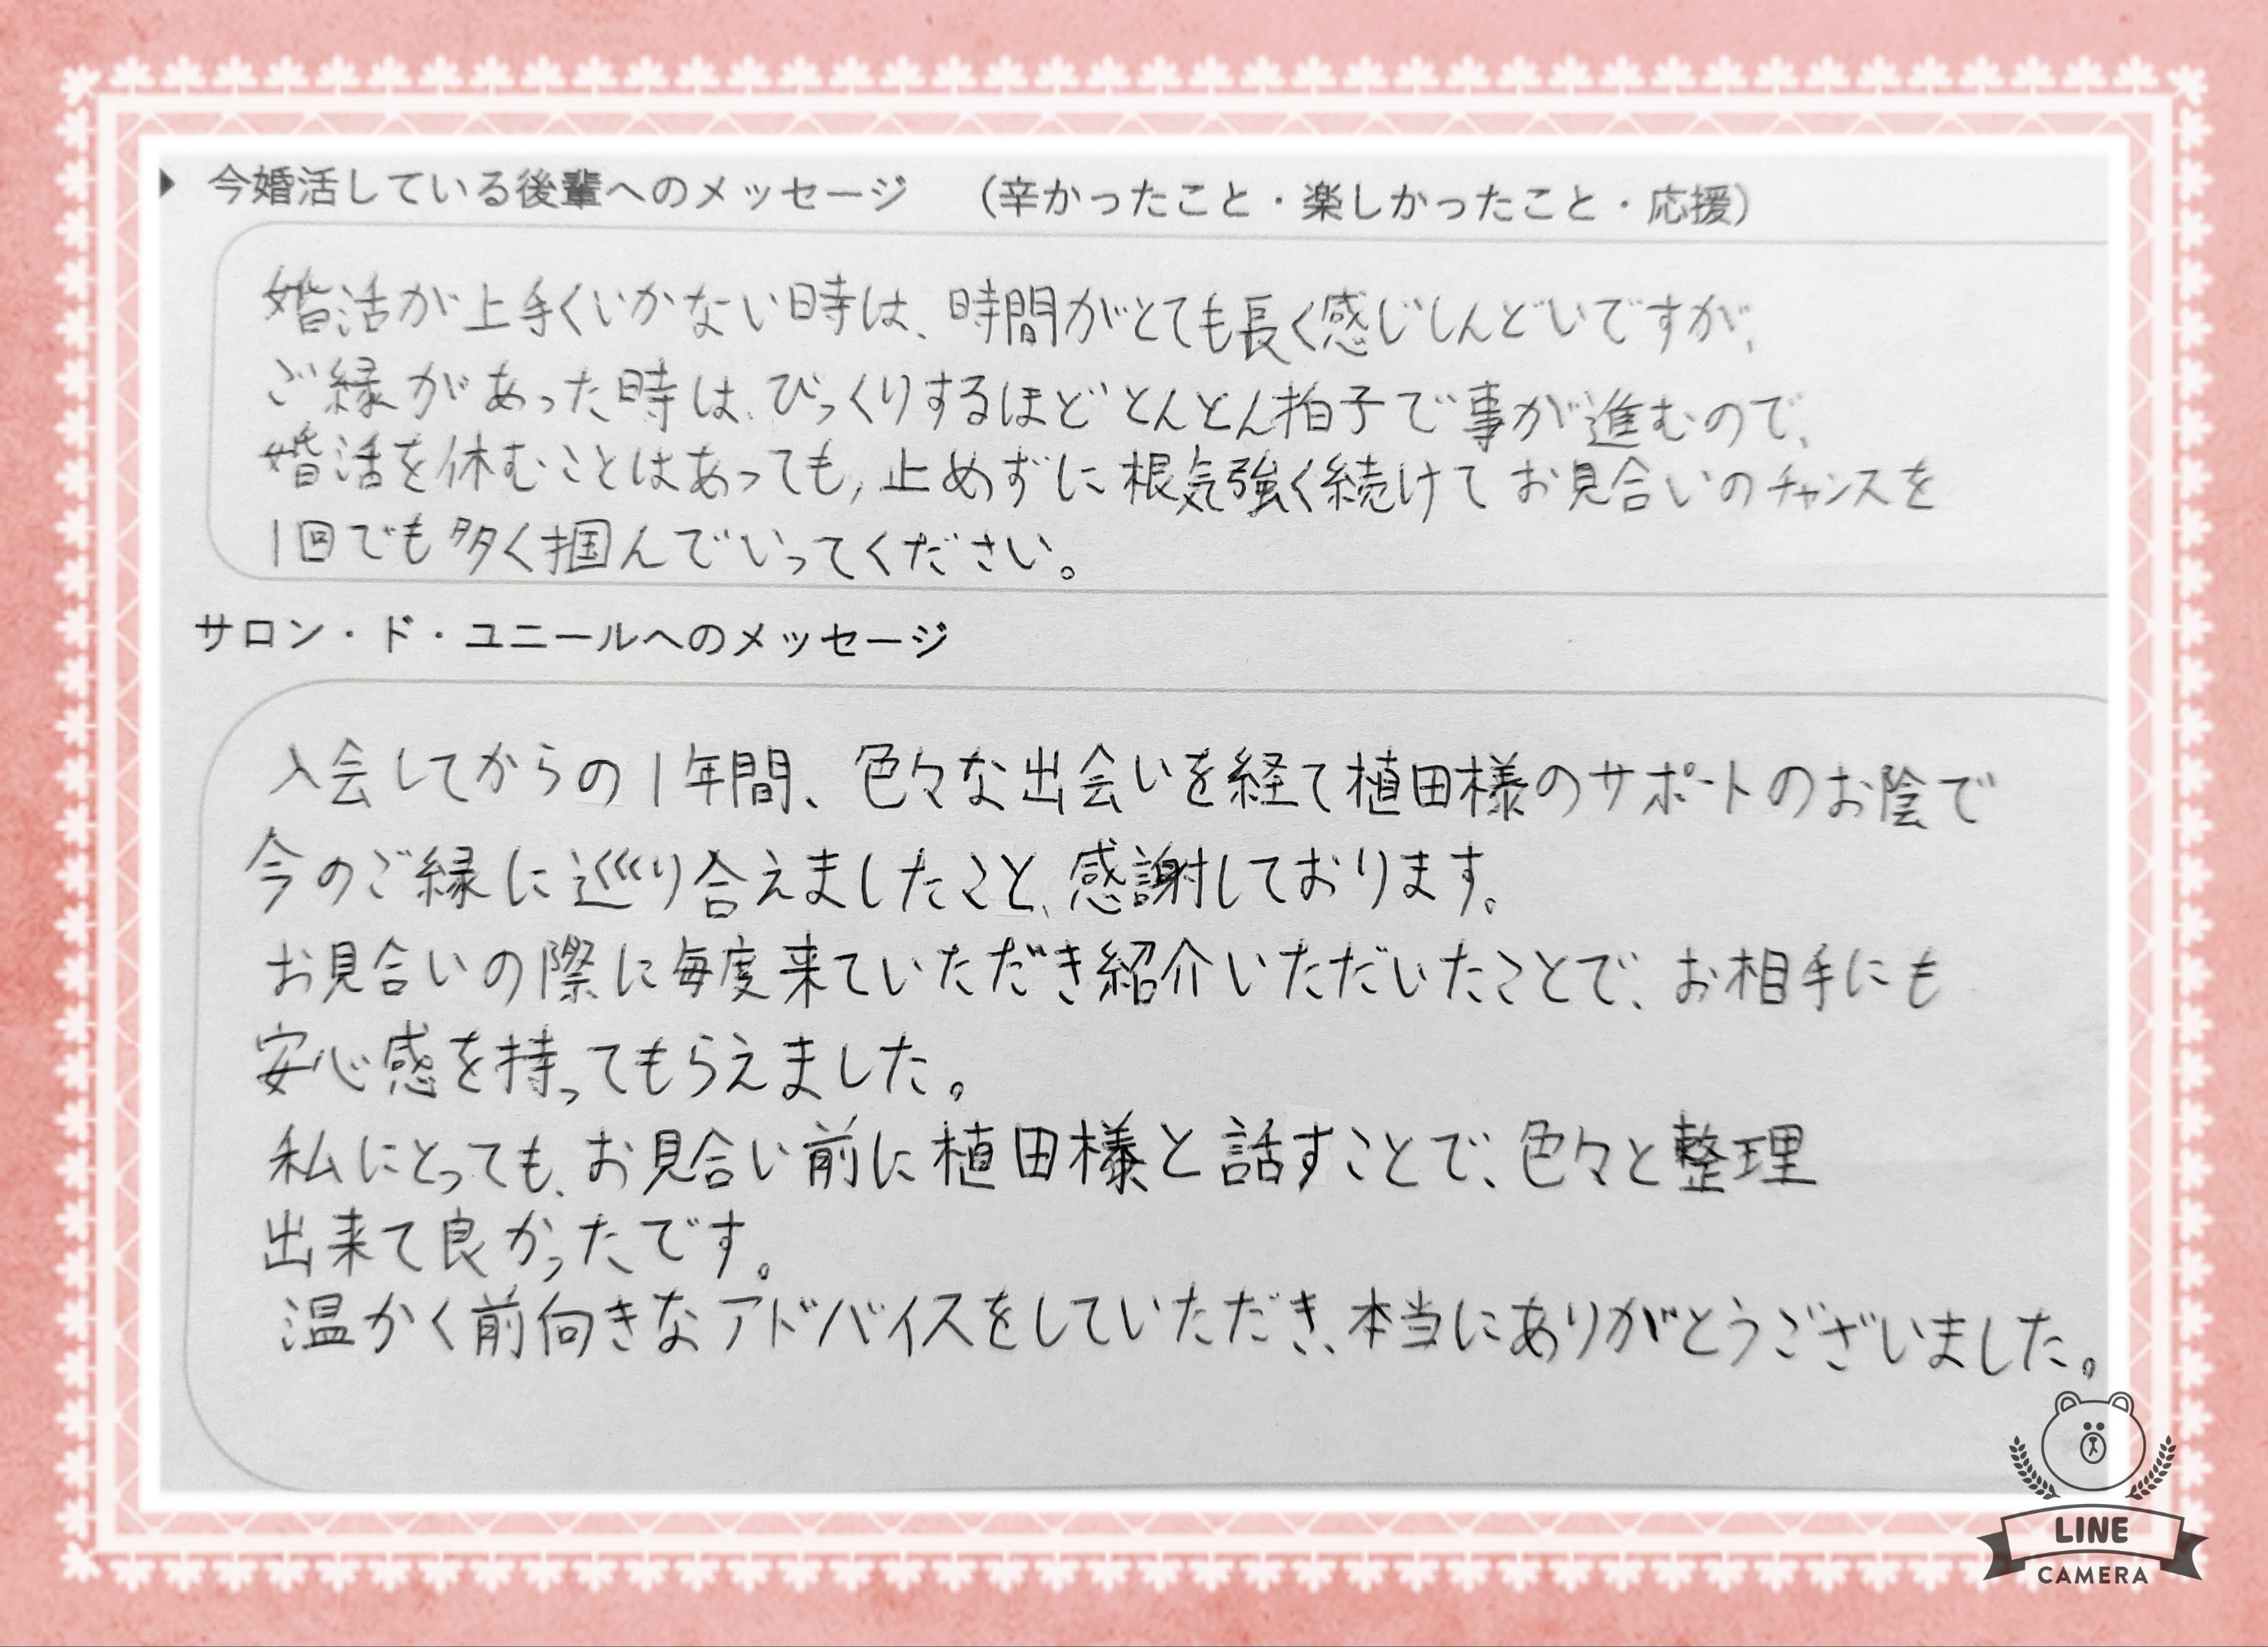 今婚活している後輩へのメッセージ　（辛かったこと・楽しかったこと・応援）
婚活が上手くいかない時は、時間がとても長く感じしんどいですが、
ご縁があった時は、びっくりするほどとんとん拍子で事が進むので、
婚活を休むことはあっても、止めずに根気強く続けてお見合いのチャンスを
1回でも多く掴んでいってください。
サロン・ド・ユニールへのメッセージ
入会してからの1年間、色々な出会いを経て植田様のサポートのお陰で
今のご縁に巡り合えましたこと、感謝しております。
お見合いの際に毎度来ていただき紹介いただいたことで、お相手にも
安心感を持ってもらえました。
私にとっても、お見合い前に植田様と話すことで、色々と整理
出来て良かったです。
温かく前向きなアドバイスをしていただき、本当にありがとうございました。
LINE
CAMERA